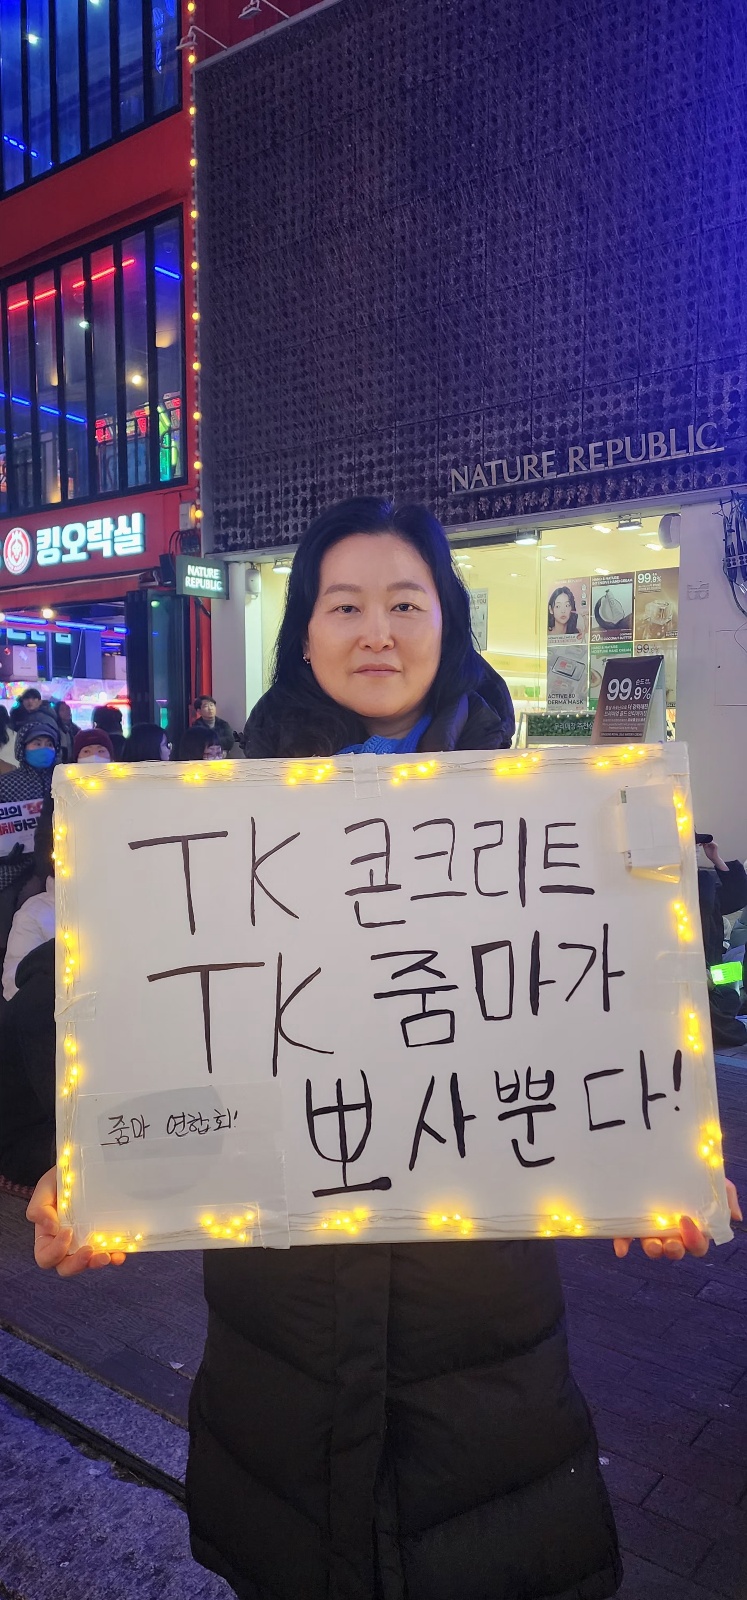 NATURE REPUBLIC
킹오락실
NATURE
REPUBLIC
99.8%
20%
99.9%
ACTIVE
DERMA MASK
TK 콘크리트
TK 줌마가
뽀사뿐다!
줌마 연합회!